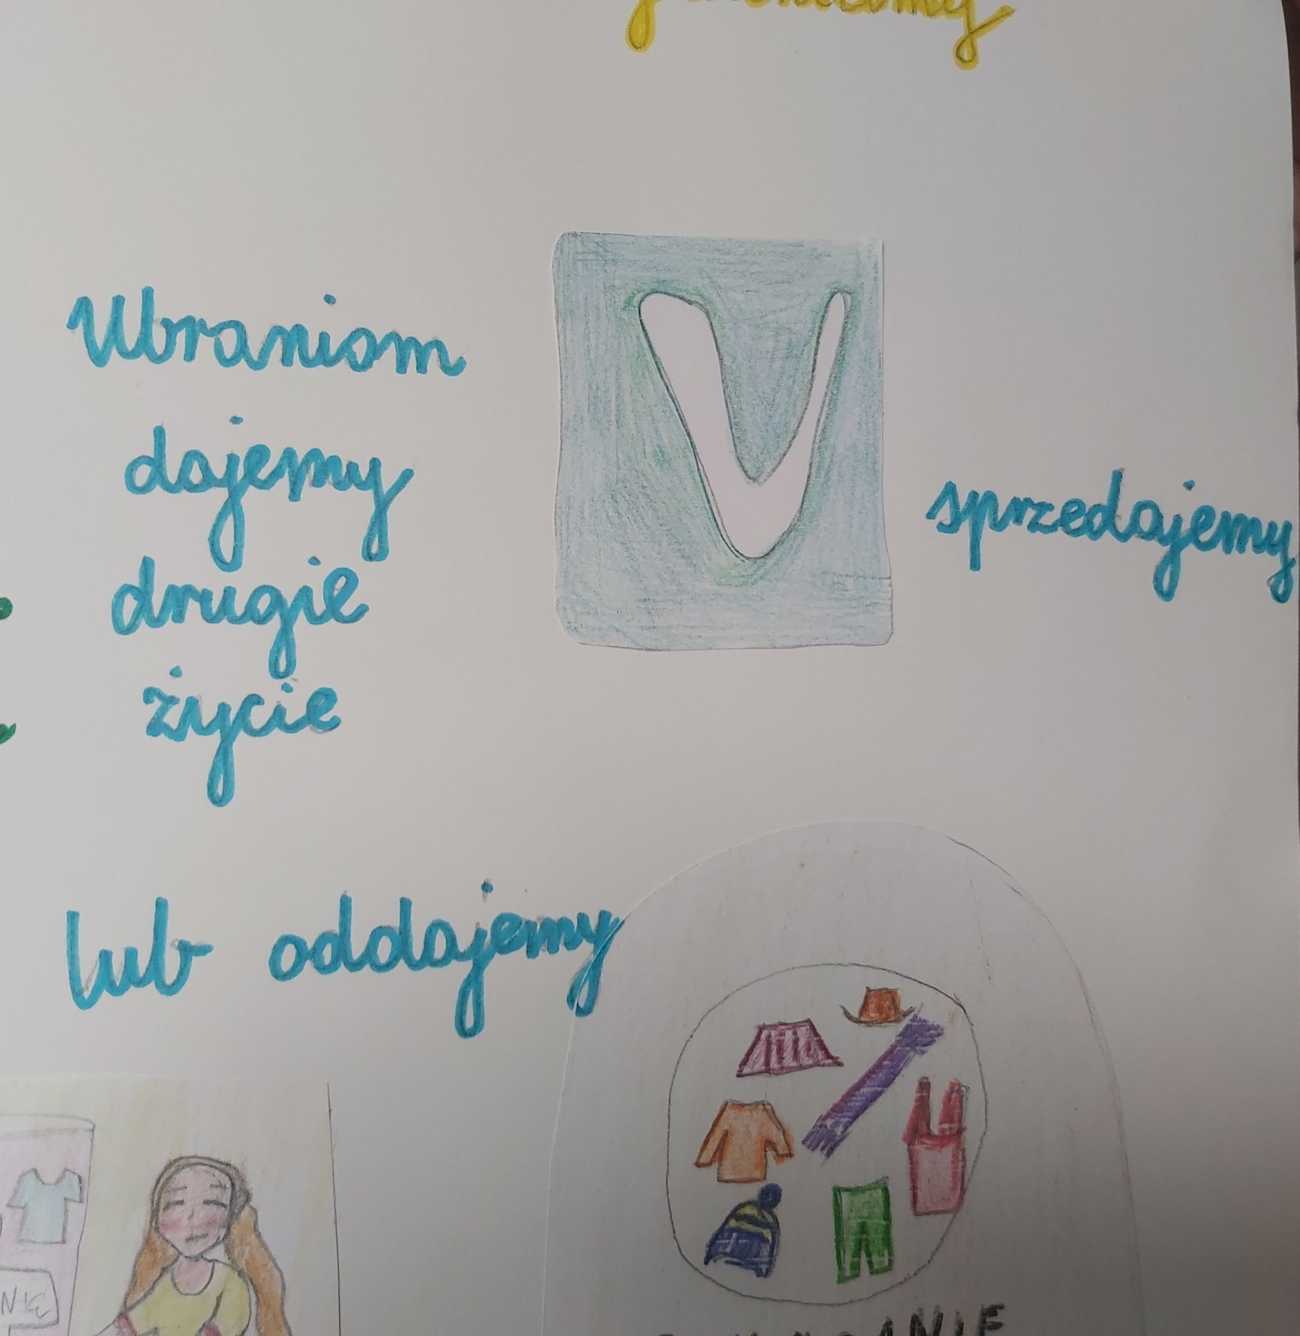 Ubraniom
dajemy
drugie
życie
V
sprzedajemy
lub oddajemy